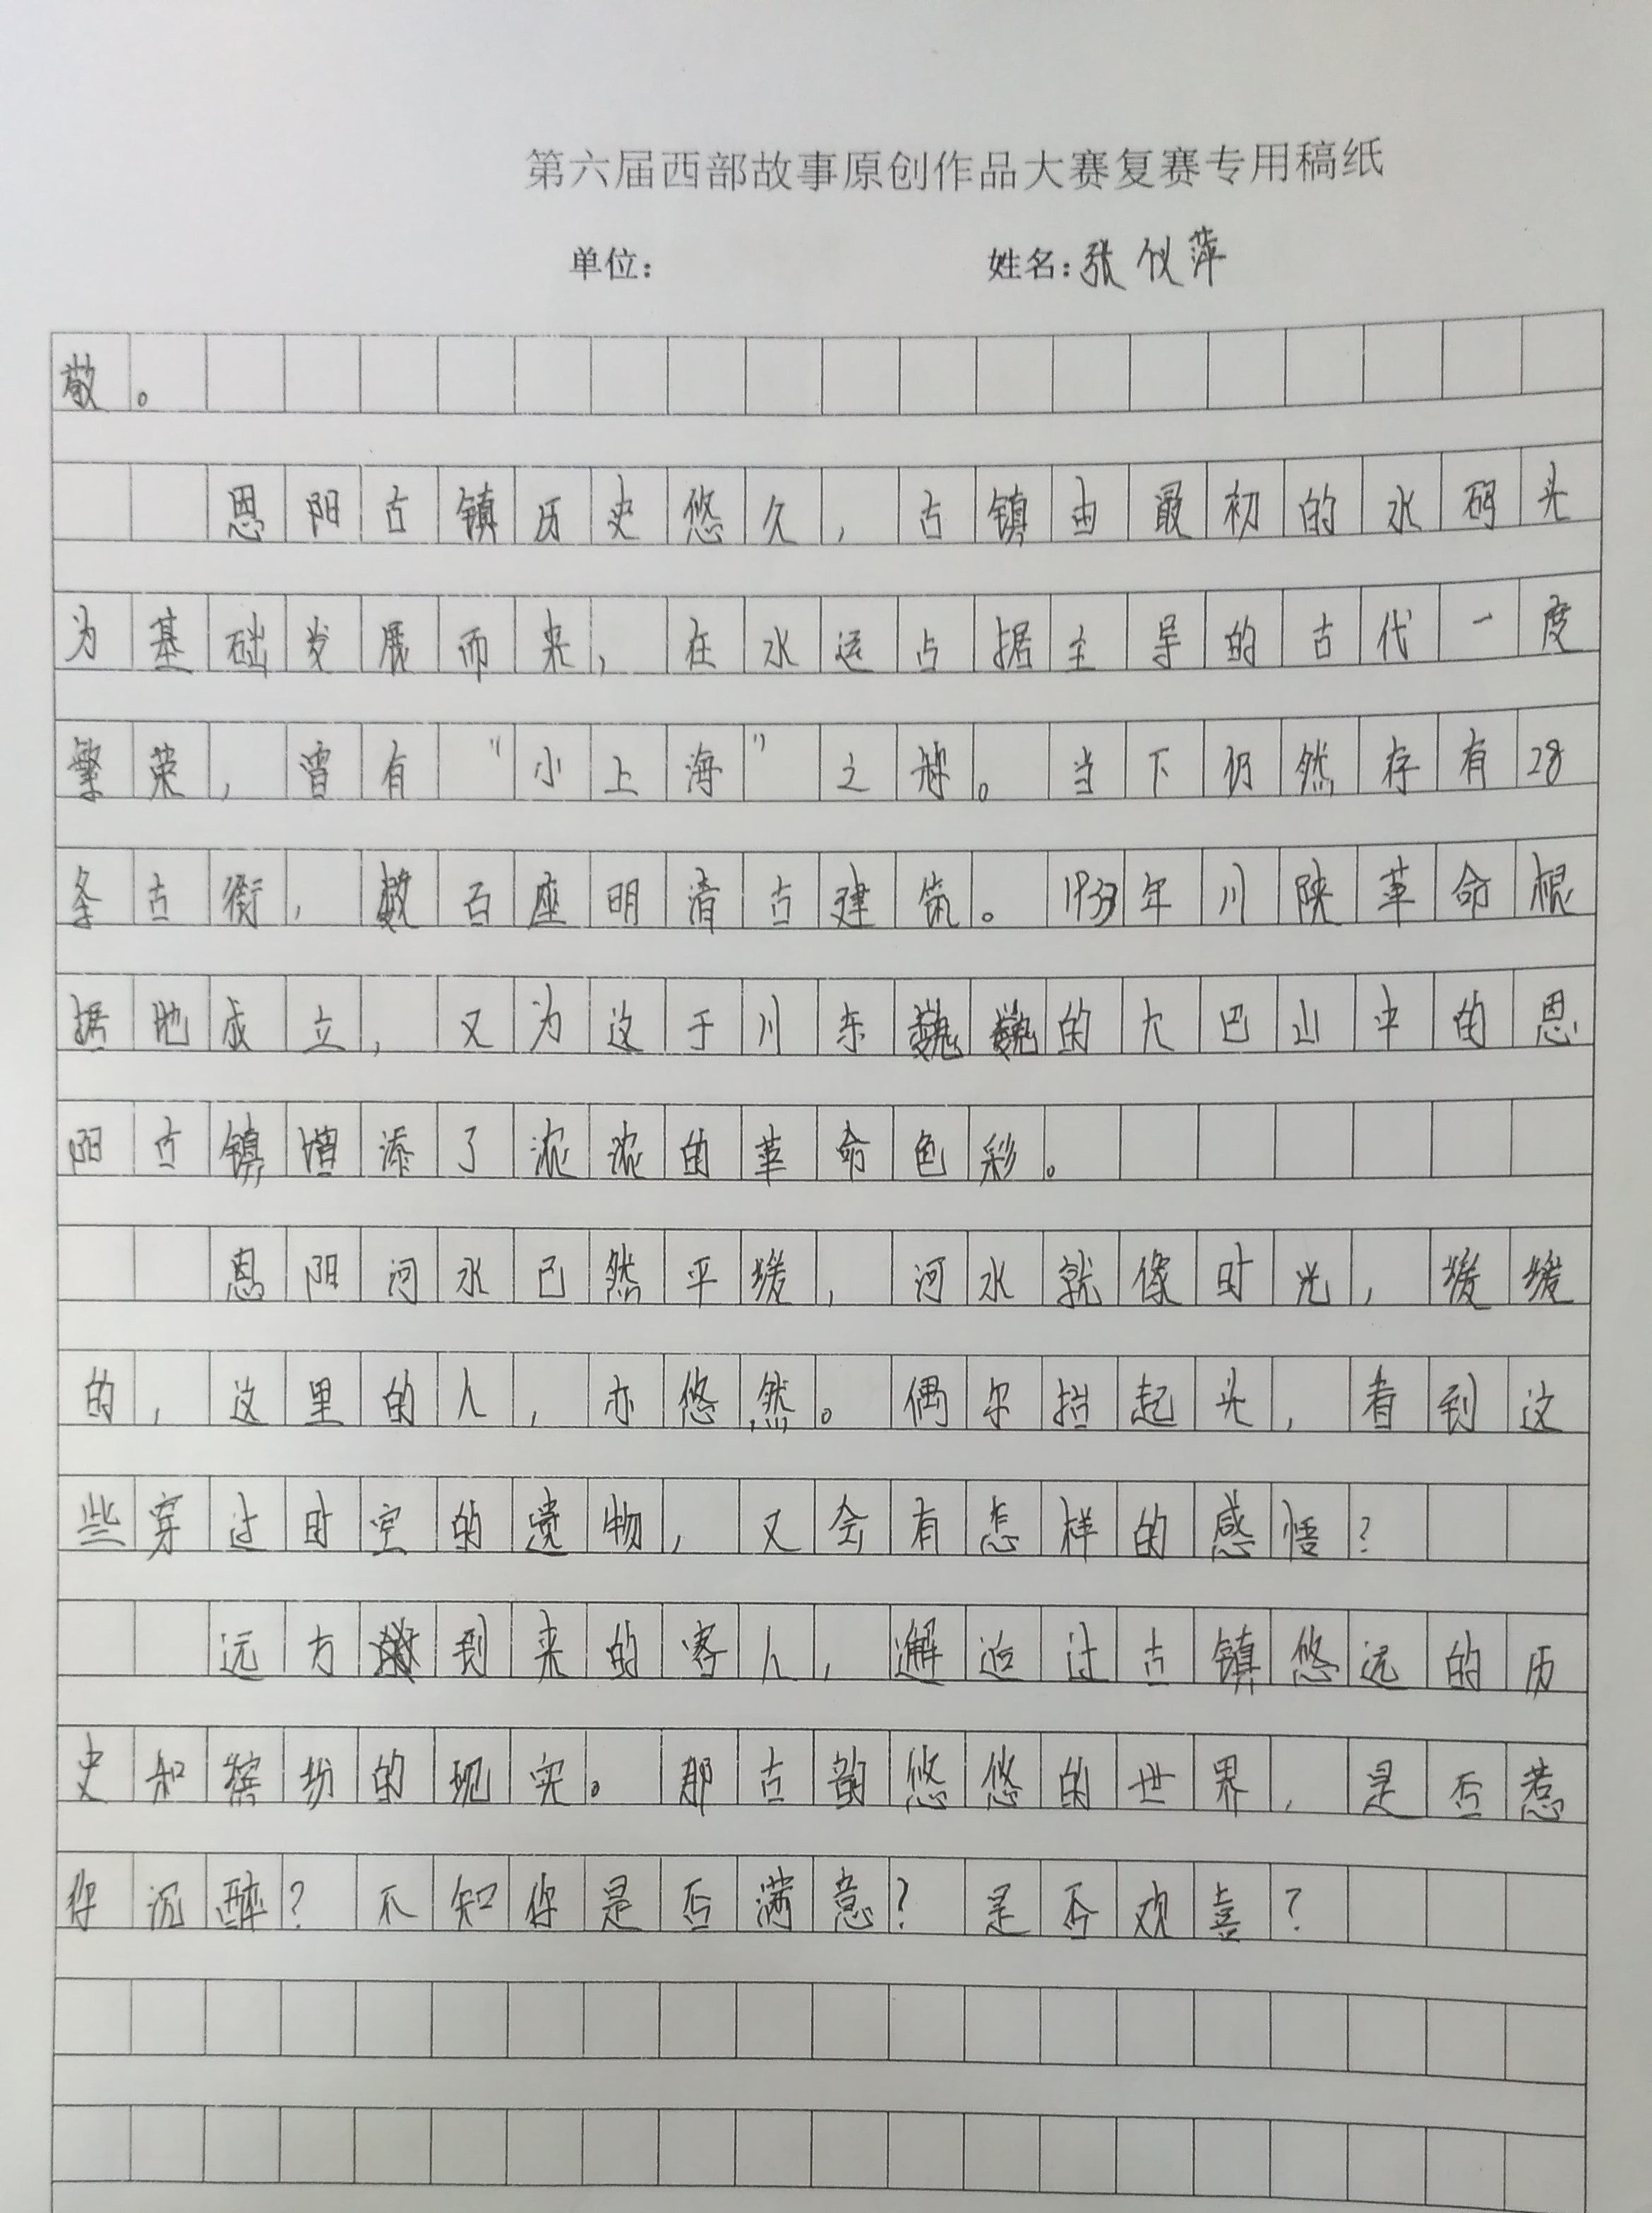 第六届西部故事原创作品大赛复赛专用稿纸
单位： 姓名：张仪萍
敬。
恩阳古镇历史悠久，古镇由最初的水码头
为基础发展而来，在水运占据主导的古代一度
繁荣，曾有“小上海”之称。当下仍然存有28
条古街，数百座明清古建筑。1933年川陕革命根
据地成立，又为这于川东巍巍的大巴山中的恩
阳古镇增添了浓浓的革命色彩。
恩阳河水已然平缓，河水就像时光，缓缓
的，这里的人，亦悠然。偶尔抬起头，看到这
些穿过时空的遗物，又会有怎样的感悟？
远方到来的客人，邂逅过古镇悠远的历
史和缤纷的现实。那古韵悠悠的世界，是否惹
你沉醉？不知你是否满意？是否欢喜？